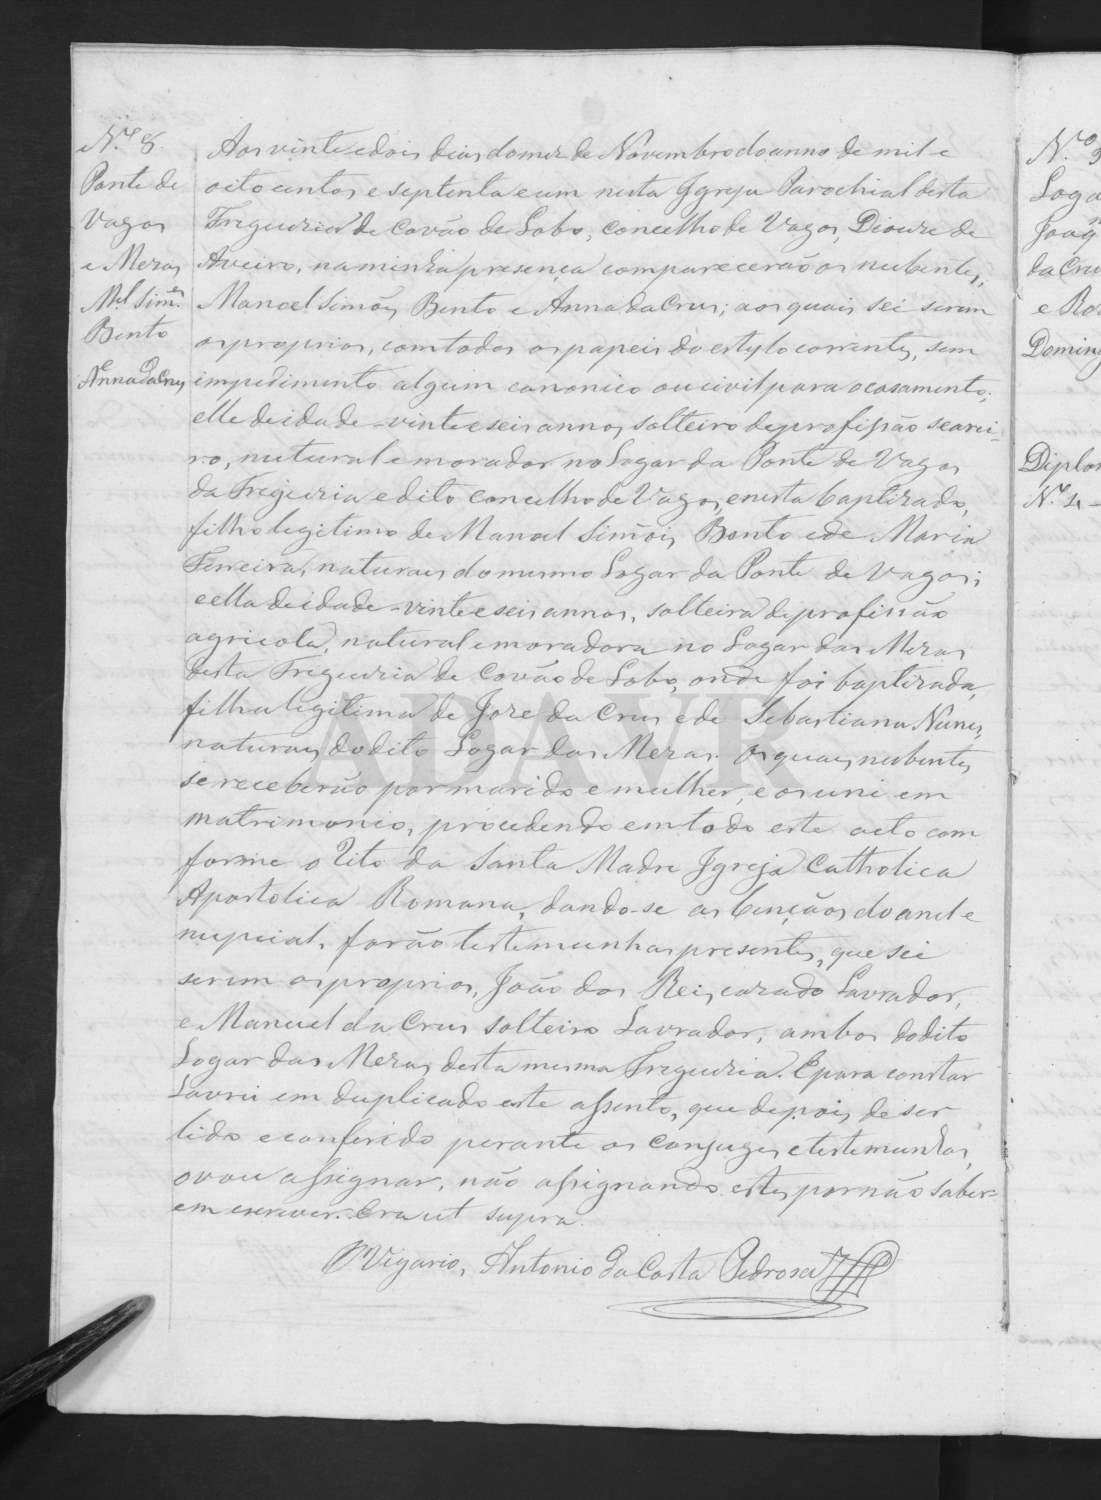 N.º 8.
Ponte de
Vagos
e Mezas
M.el Sim.es
Bento
Anna da Cruz
Aos vinte e dois dias do mez de Novembro do anno de mil e
oito centos e septenta e um nesta Igreja Parochial desta
Freguezia de Covão de Lobo, concelho de Vagos, Dioceze de
Aveiro, na minha presença comparecerão os nubentes,
Manoel Simões Bento e Anna da Cruz; aos quais sei serem
os proprios, com todos os papeis do estylo correntes, sem
impedimento algum canonico ou civil para o casamento;
elle de idade vinte e seis annos, solteiro de profissão searei-
ro, natural e morador no Logar da Ponte de Vagos
da Freguezia e dito concelho de Vagos, e nesta baptizado,
filho legitimo de Manoel Simões Bento e de Maria
Ferreira, naturaes do mesmo Logar da Ponte de Vagos;
e ella de idade vinte e seis annos, solteira de profissão
agricola, natural e moradora no Logar das Mezas
desta Freguezia de Covão de Lobo, onde foi baptizada,
filha legitima de Joze da Cruz e de Sebastiana Nunes,
naturaes do dito Logar das Mezas. Os quaes nubentes
se receberão por marido e mulher, e os uni em
matrimonio, procedendo em todo este acto com
forme o Rito da Santa Madre Igreja Catholica
Apostolica Romana, dando-se as bençãos do anel e
nupcial. forão testemunhas presentes, que sei
serem os proprios, João dos Reis, cazado Lavrador,
e Manuel da Cruz solteiro Lavrador, ambos do dito
Logar das Mezas desta mesma Freguezia. E para constar
Lavrei em duplicado este assento, que depois de ser
lido e conferido perante os conjuges e testemunhas,
o vou assignar, não assignando estes por não sabe-
rem escrever. Era ut supra.
O Vigario, Antonio da Costa Pedrosa
ADAVR
N.º 9
Loga
Joaq
da Cru
e Ro
Doming
Diplo
N.º 1